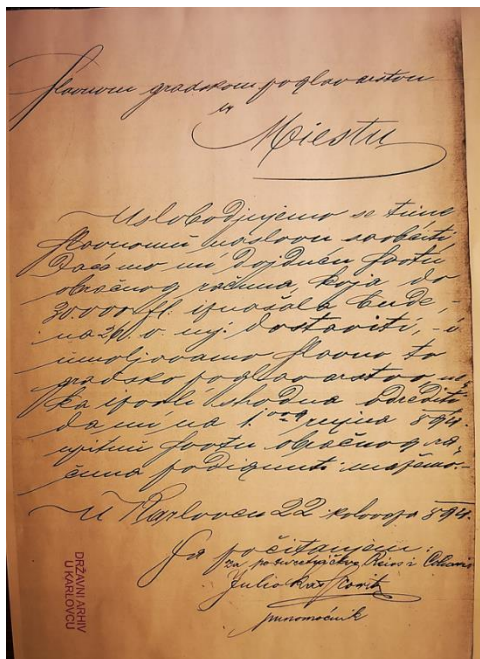 Slavnom gradskom poglavarstvu
u
Miestu
Uslobodjujemo se time
slavnomu naslovu saobćiti
da ćemo mi dojduću svotu
obračnog računa, koja do
30.000 fl. iznašala bude, -
na 26. o. mj. dostaviti, - i
umoljavamo slavno to
gradsko poglavarstvo, ne-
ka izvoli shodna odrediti
da mi na 1. rujna 894.
svotu obračnog ra-
čuna podignuti možemo. -
U Karlovcu 22 kolovoza 894.
Sa počitanjem:
za poduzetničtvo
Julio
punomoćnik
DRŽAVNI ARHIV
U KARLOVCU